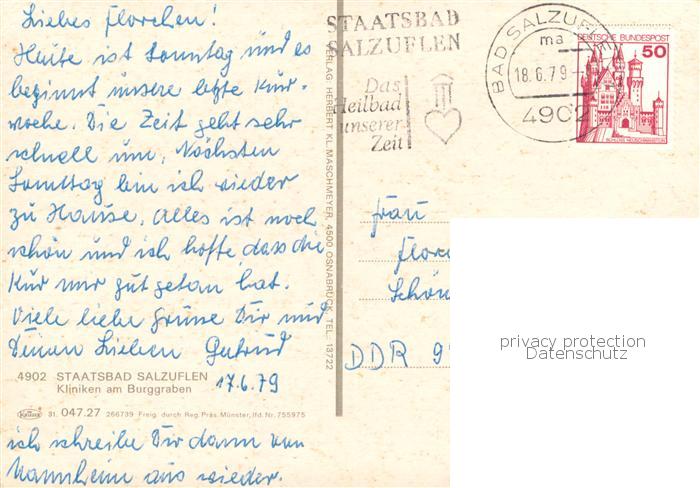 Liebes Florchen!
Heute ist Sonntag und es
beginnt unsere letzte Kur-
woche. Die Zeit geht sehr
schnell um, Nächsten
Sonntag bin ich wieder
zu Hause, alles ist noch
schön und ich hoffe, dass die
Kur mir gut getan hat.
Viele liebe Grüße Dir und
Deinen Lieben
4902 STAATSBAD SALZUFLEN
Kliniken am Burggraben 17.6.79
31. 047.27 266739 Freig. durch Reg. Präs. Münster, lfd. Nr. 755975
ich schreibe Dir dann von
Mannheim aus wieder.
VERLAG HERBERT KL. MASCHMEYER, 4500 OSNABRÜCK, TEL. 13722
STAATSBAD
SALZUFLEN
Das
Heilbad
unserer
Zeit
BAD SALZUFLEN
ma
18.6.79
4902
DEUTSCHE BUNDESPOST
50
SCHLOSS NEUSCHWANSTEIN
Frau
Flor
Schön
DDR 9
privacy protection
Datenschutz